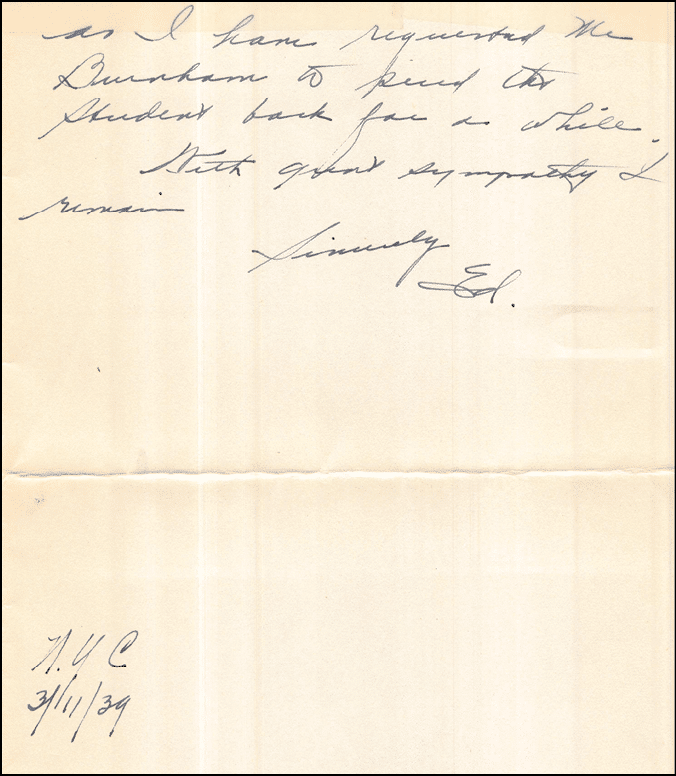 as I have requested Mr
Burnham to send the
student back for a while.
With great sympathy I
remain
Sincerely
Ed.
N.Y.C
3/11/39